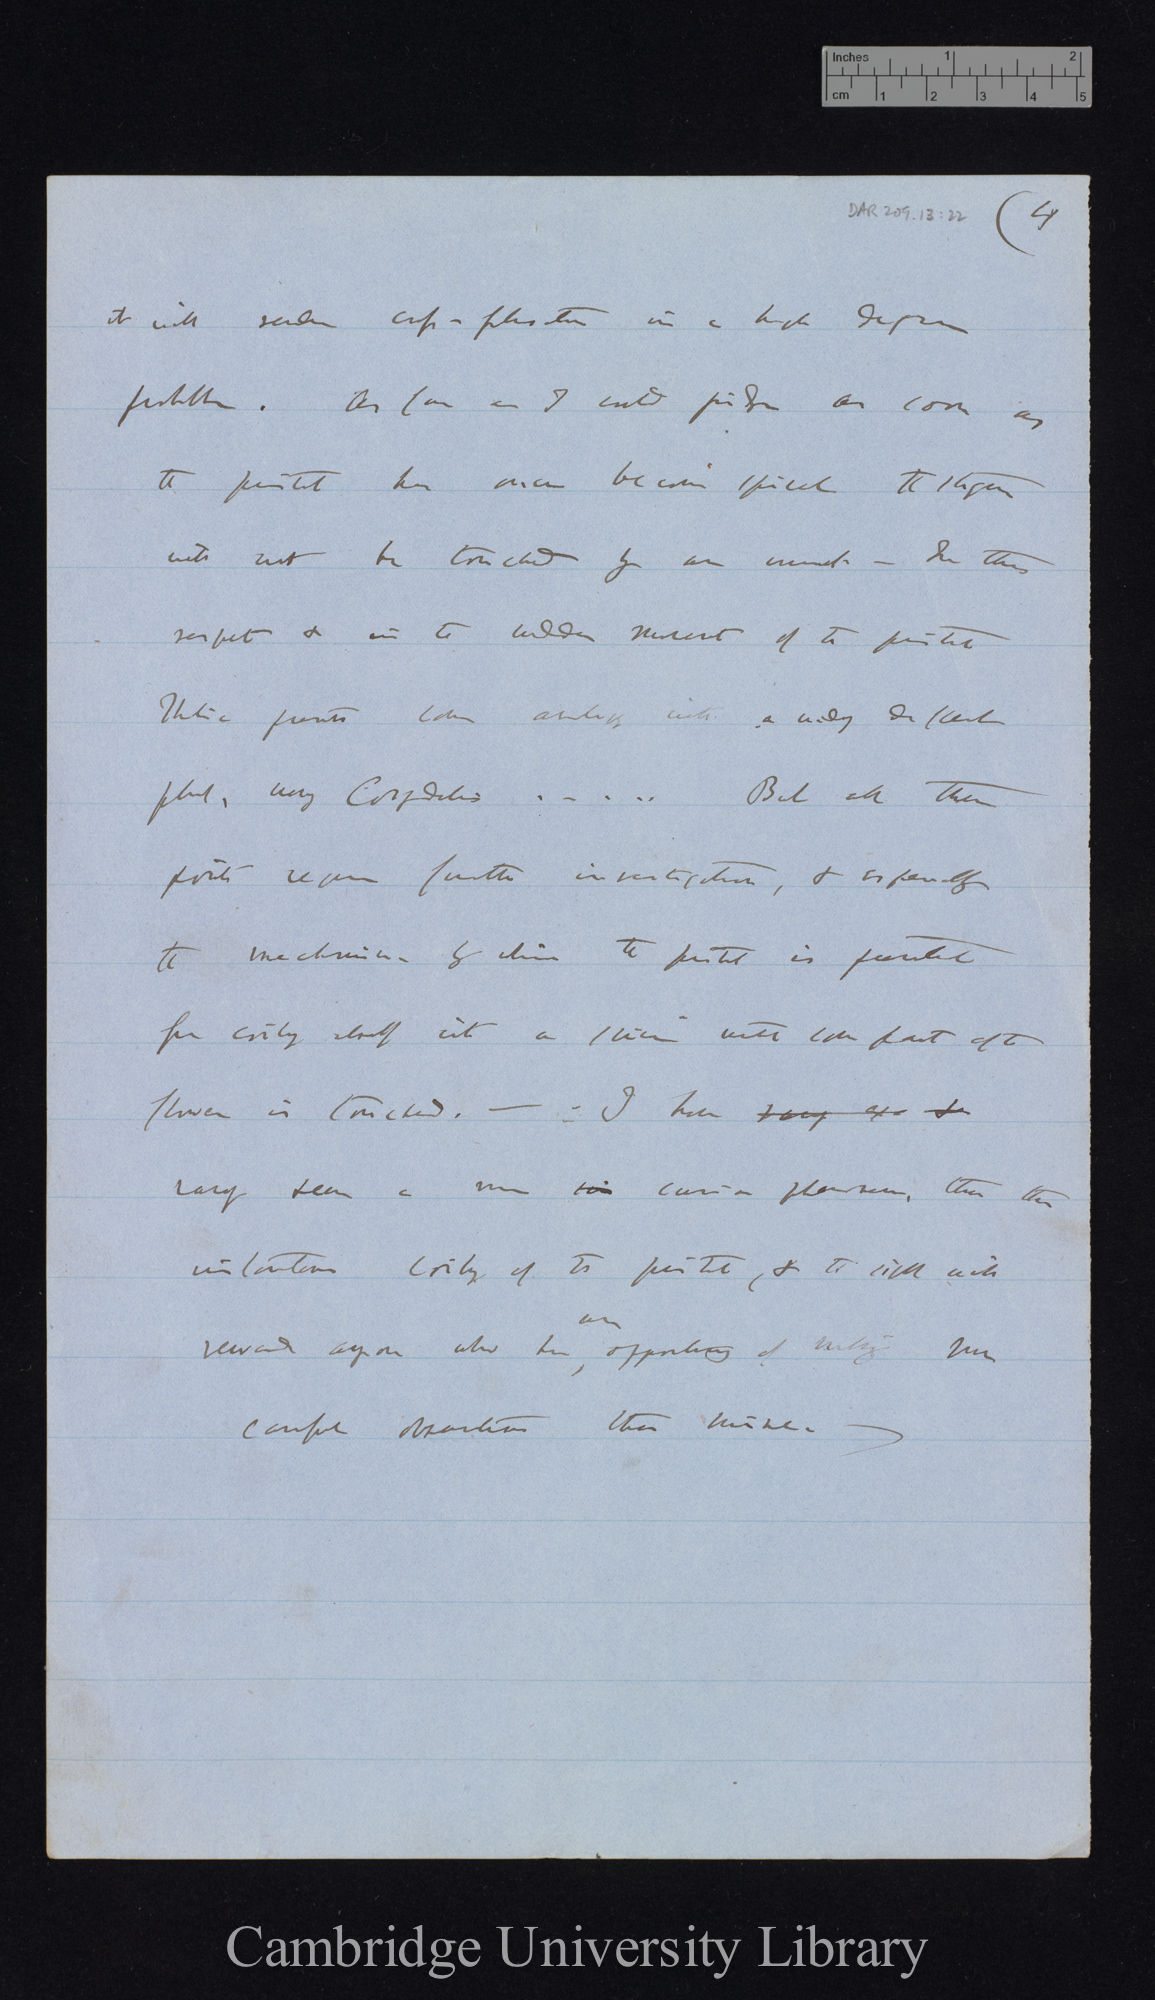 Inches 1 2
cm 1 2 3 4 5
DAR 209.13:22 (4
it will render cross-fertilisation in a high degree
probable. As far as I could judge as soon as
the pistil has once become spiral the stigma
will not be touched by an insect — In this
respect & in the sudden movement of the pistil
presents some analogy with a widely different
plant, viz Corydalis . - . . .. But all these
points require further investigation, & especially
the mechanism by which the pistil is
for coiling itself into a when some part of the
flower is touched. — I have
rarely seen a more curious phenomenon, than the
instantaneous coiling of the pistil, & the sight will
reward anyone who has an opportunity of making more
careful observations than mine.
Cambridge University Library